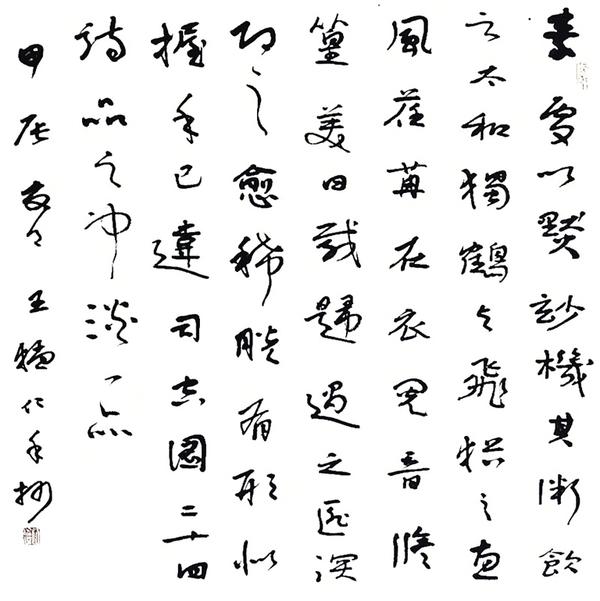 素處以默玅機其微飲
之太和獨鶴與飛猶之惠
風荏苒在衣閱音脩
篁美曰載歸遇之匪深
即之愈稀脱有形似
握手已違司空圖二十四
詩品之沖淡一
甲辰 王 仁手抄